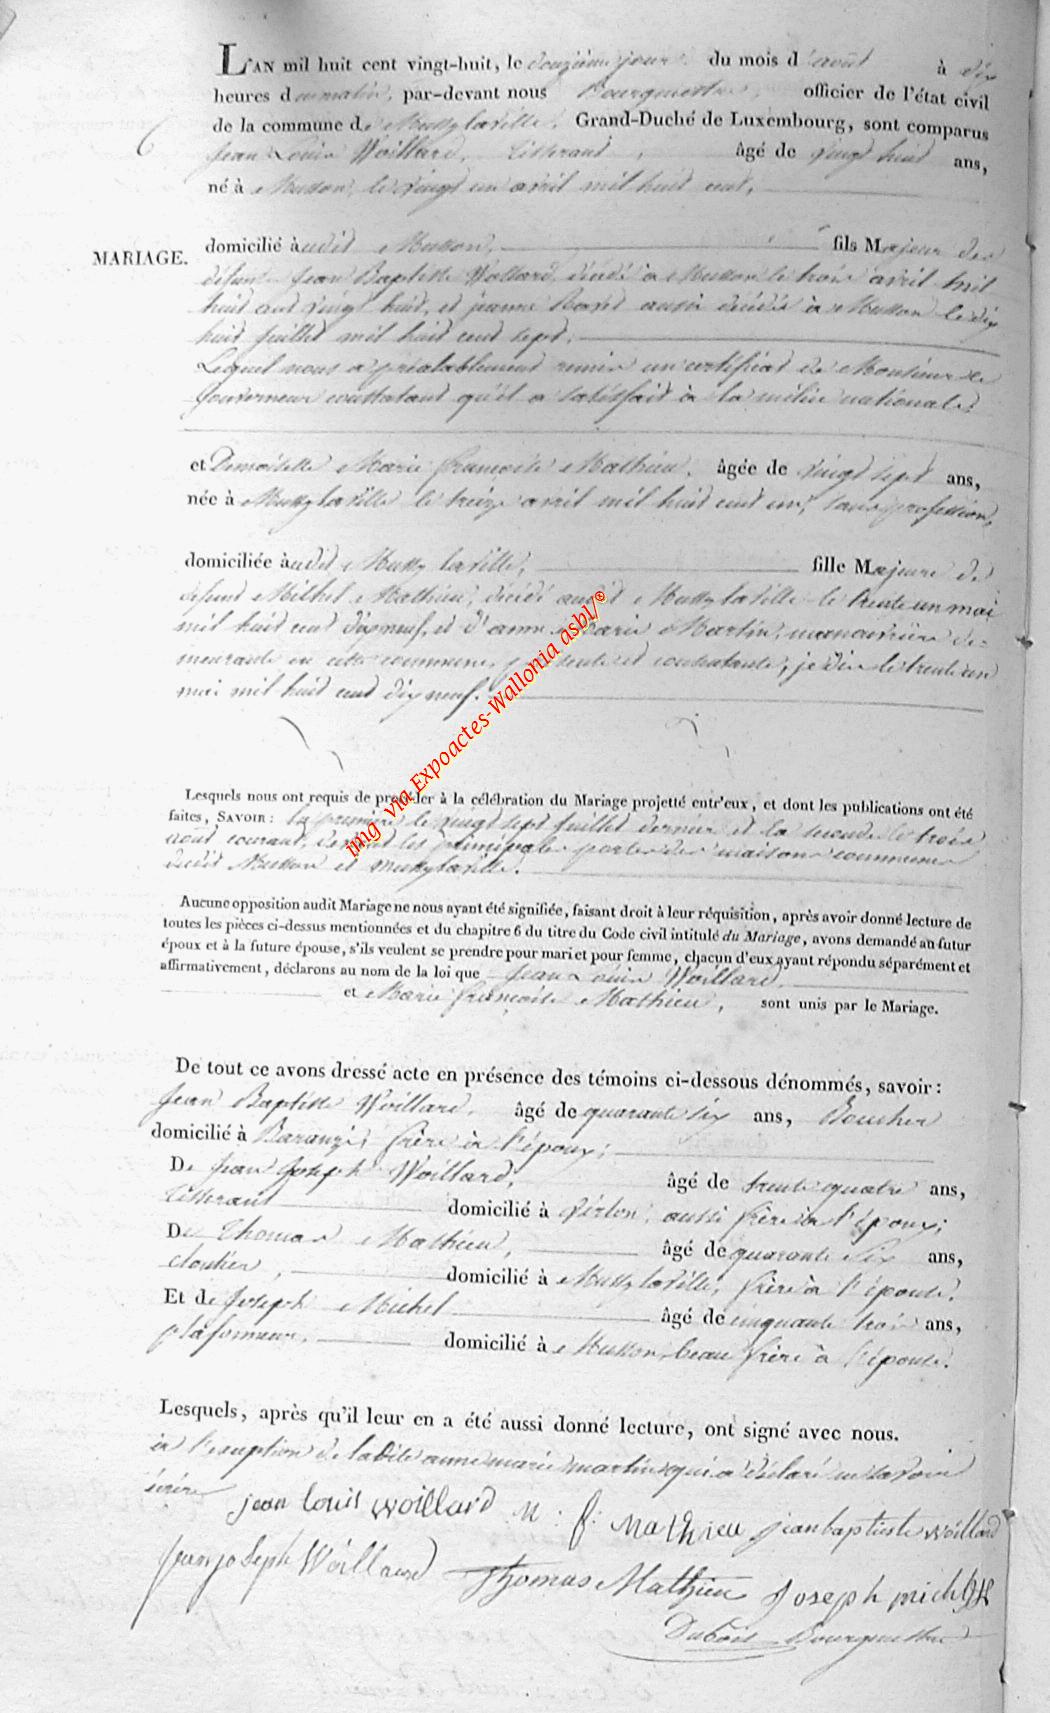 L'AN mil huit cent vingt-huit, le douzième jour du mois d'août à dix
heures du matin, par-devant nous Bourguestre, officier de l'état civil
de la commune de Mussylaville, Grand-Duché de Luxembourg, sont comparus
6
Jean Louis Woillard, tisserant, âgé de vingt huit ans,
né à Musson, le vingt un avril mil huit cent,
domicilié audit Musson, fils Majeur des
MARIAGE.
défunts Jean Baptiste Woillard, décédé à Musson le trois avril mil
huit cent vingt huit, et jeanne aussi décédée à Musson le dix
huit juillet mil huit cent sept.
Lequel nous a préalablement remis un certificat de Monsieur le
Gouverneur constatant qu'il a satisfait à la milice nationale,
et Demoiselle Marie françoise Mathieu, âgée de vingt sept ans,
née à Mussylaville le treize avril mil huit cent un, sans profession,
domiciliée audit Mussylaville, fille Majeure de
défunt Michel Mathieu, décédé audit Mussylaville le trente un mai
mil huit cent dix neuf, et d'anne Marie Martin, manouvrière de-
meurante en cette commune, présente et contractante, je dis le trente un
mai mil huit cent dix neuf.
Lesquels nous ont requis de procéder à la célébration du Mariage projetté entr'eux, et dont les publications ont été
faites, SAVOIR: la première le vingt sept juillet dernier et la seconde le trois
août courant, devant les principales portes des maisons communes
dudit Musson et Mussylaville.
Aucune opposition audit Mariage ne nous ayant été signifiée, faisant droit à leur réquisition, après avoir donné lecture de
toutes les pièces ci-dessus mentionnées et du chapitre 6 du titre du Code civil intitulé du Mariage, avons demandé au futur
époux et à la future épouse, s'ils veulent se prendre pour mari et pour femme, chacun d'eux ayant répondu séparément et
affirmativement, déclarons au nom de la loi que Jean Louis Woillard,
et Marie françoise Mathieu, sont unis par le Mariage.
De tout ce avons dressé acte en présence des témoins ci-dessous dénommés, savoir:
Jean Baptiste Woillard, âgé de quarante six ans, Boucher
domicilié à Baranzi, frère à l'époux;
De Jean Joseph Woillard, âgé de trente quatre ans,
tisserant domicilié à Virton, aussi frère à l'époux;
De Thomas Mathieu, âgé de quarante six ans,
cloutier, domicilié à Mussylaville, frère à l'épouse.
Et de Joseph Michel âgé de cinquante trois ans,
plafonneur, domicilié à Musson, beau frère à l'épouse.
Lesquels, après qu'il leur en a été aussi donné lecture, ont signé avec nous.
à l'exception de ladite anne marie martin qui a déclaré ne savoir
écrire
jean louis woillard M: f: Mathieu jean baptiste woillard
jean joseph Woillard Thomas Mathieu Joseph michel
Dubois Bourguestre
img via Expoactes-Wallonia asbl/®